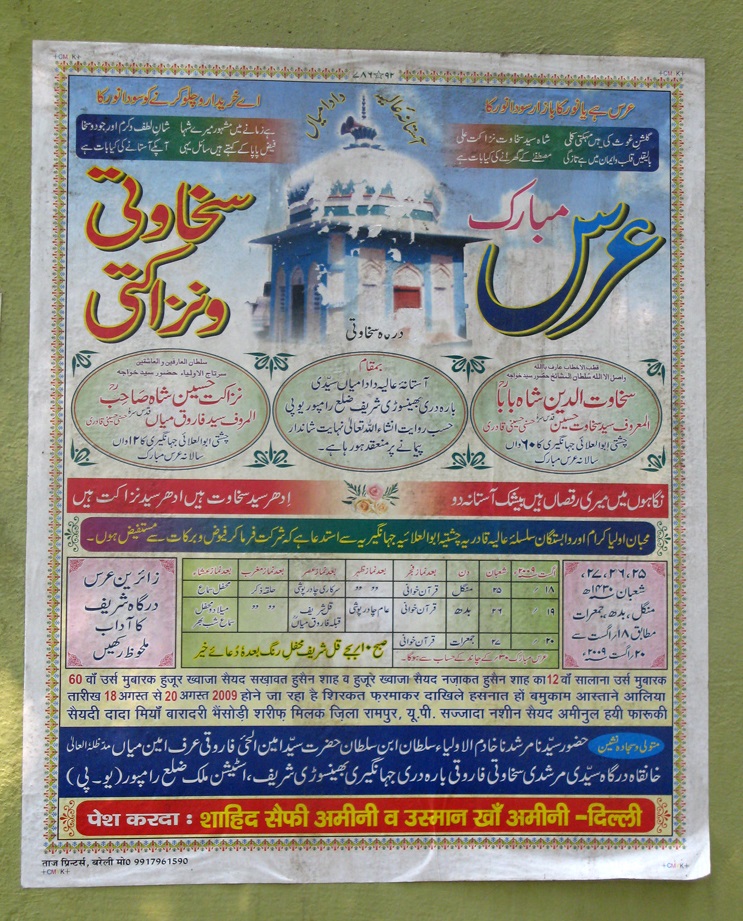 ۷۸۶☆۹۲
عرس ہے یا نور کا بازار سودا نور کا
اے خریدارو چلو کرنے کو سودا نور کا
آستانہ عالیہ دادا میاں
گلشن غوث کی ہیں مہکتی کلی
شاہ سید سخاوت نزاکت علی
بالیقیں قلب و ایمان میں ہے تازگی
مصطفٰے کے گھرانے کی کیا بات ہے
ہے زمانے میں مشہور میرے شہا
شانِ لطف و کرم اور جود و سخا
فیض پایا کے کہتے ہیں سائل یہی
آپکے آستانے کی کیا بات ہے
عرس مبارک
سخاوتی
و نزاکتی
درگاہ سخاوتی
قطب الاخطاب عارف باللہ
واصل الا اللہ سلطان المشائخ حضور سید خواجہ
سخاوت الدین شاہ بابا
المعروف سید سخاوت حسین حسنی حسینی قادری
چشتی ابوالعلائی جہانگیری کا ۶۰ واں
سالانہ عرس مبارک
بمقام
آستانہ عالیہ دادا میاں سیدی
بارہ دری بھینسوڑی شریف ضلع رامپور یوپی
حسب روایت انشاء اللہ تعالیٰ نہایت شاندار
پیمانے پر منعقد ہو رہا ہے۔
سلطان العارفین والعاشقین
سرتاج الاولیاء حضور سید خواجہ
نزاکت حسین شاہ صاحب
المروف سید فاروق میاں حسنی حسینی قادری
چشتی ابوالعلائی جہانگیری کا ۱۲ واں
سالانہ عرس مبارک
نگاہوں میں میری رقصاں ہیں بیشک آستانہ دو
اِدھر سید سخاوت ہیں اُدھر سید نزاکت ہیں
محبان اولیا کرام اور وابستگان سلسلۂ عالیہ قادریہ چشتیہ ابوالعلائیہ جہانگیریہ سے استدعا ہے کہ شرکت فرما کر فیوض و برکات سے مستفیض ہوں۔
۲۵، ۲۶، ۲۷
شعبان ۱۴۳۰ھ
منگل، بدھ، جمعرات
مطابق ۱۸ اگست سے
۲۰ اگست ۲۰۰۹
اگست ۲۰۰۹ شعبان دن بعد نماز فجر بعد نماز ظہر بعد نماز عصر بعد نماز مغرب بعد نماز عشاء
۱۸ " ۲۵ منگل قرآن خوانی " " سرکاری چادر پوشی حلقہ ذکر محفل سماع
۱۹ " ۲۶ بدھ قرآن خوانی عام چادر پوشی قل شریف قبلہ فاروق میاں " " میلاد و محفل سماع شب بھر
۲۰ " ۲۷ جمعرات قرآن خوانی صبح ۱۰ بجے قل شریف محفل رنگ بعدہٗ دعائے خیر
عرس مبارک ۳۰ کے چاند کے حساب سے ہوگا۔
زائرین عرس
درگاہ شریف
کا آداب
ملحوظ رکھیں
60 वाँ उर्स मुबारक हुजूर ख्वाजा सैयद सखावत हुसैन शाह व हुजूरे ख्वाजा सैयद नज़ाकत हुसैन शाह का 12 वाँ सालाना उर्स मुबारक
तारीख 18 अगस्त से 20 अगस्त 2009 होने जा रहा है शिरकत फरमाकर दाखिले हसनात हों बमुकाम आस्ताने आलिया
सैयदी दादा मियाँ बारादरी भैंसोड़ी शरीफ़ मिलक ज़िला रामपुर, यू.पी. सज्जादा नशीन सैयद अमीनुल हयी फारूकी
متولی و سجادہ نشین حضور سیدنا مرشدنا خادم الاولیاء سلطان ابن سلطان حضرت سید امین الحئی فاروقی عرف امین میاں مدظلہ العالی
خانقاہ درگاہ سیدی مرشدی سخاوتی فاروقی بارہ دری جہانگیری بھینسوڑی شریف، اسٹیشن ملک ضلع رامپور (یو۔پی)
पेश करदा : शाहिद सैफी अमीनी व उस्मान खाँ अमीनी -दिल्ली
ताज प्रिन्टर्स, बरेली मो0 9917961590